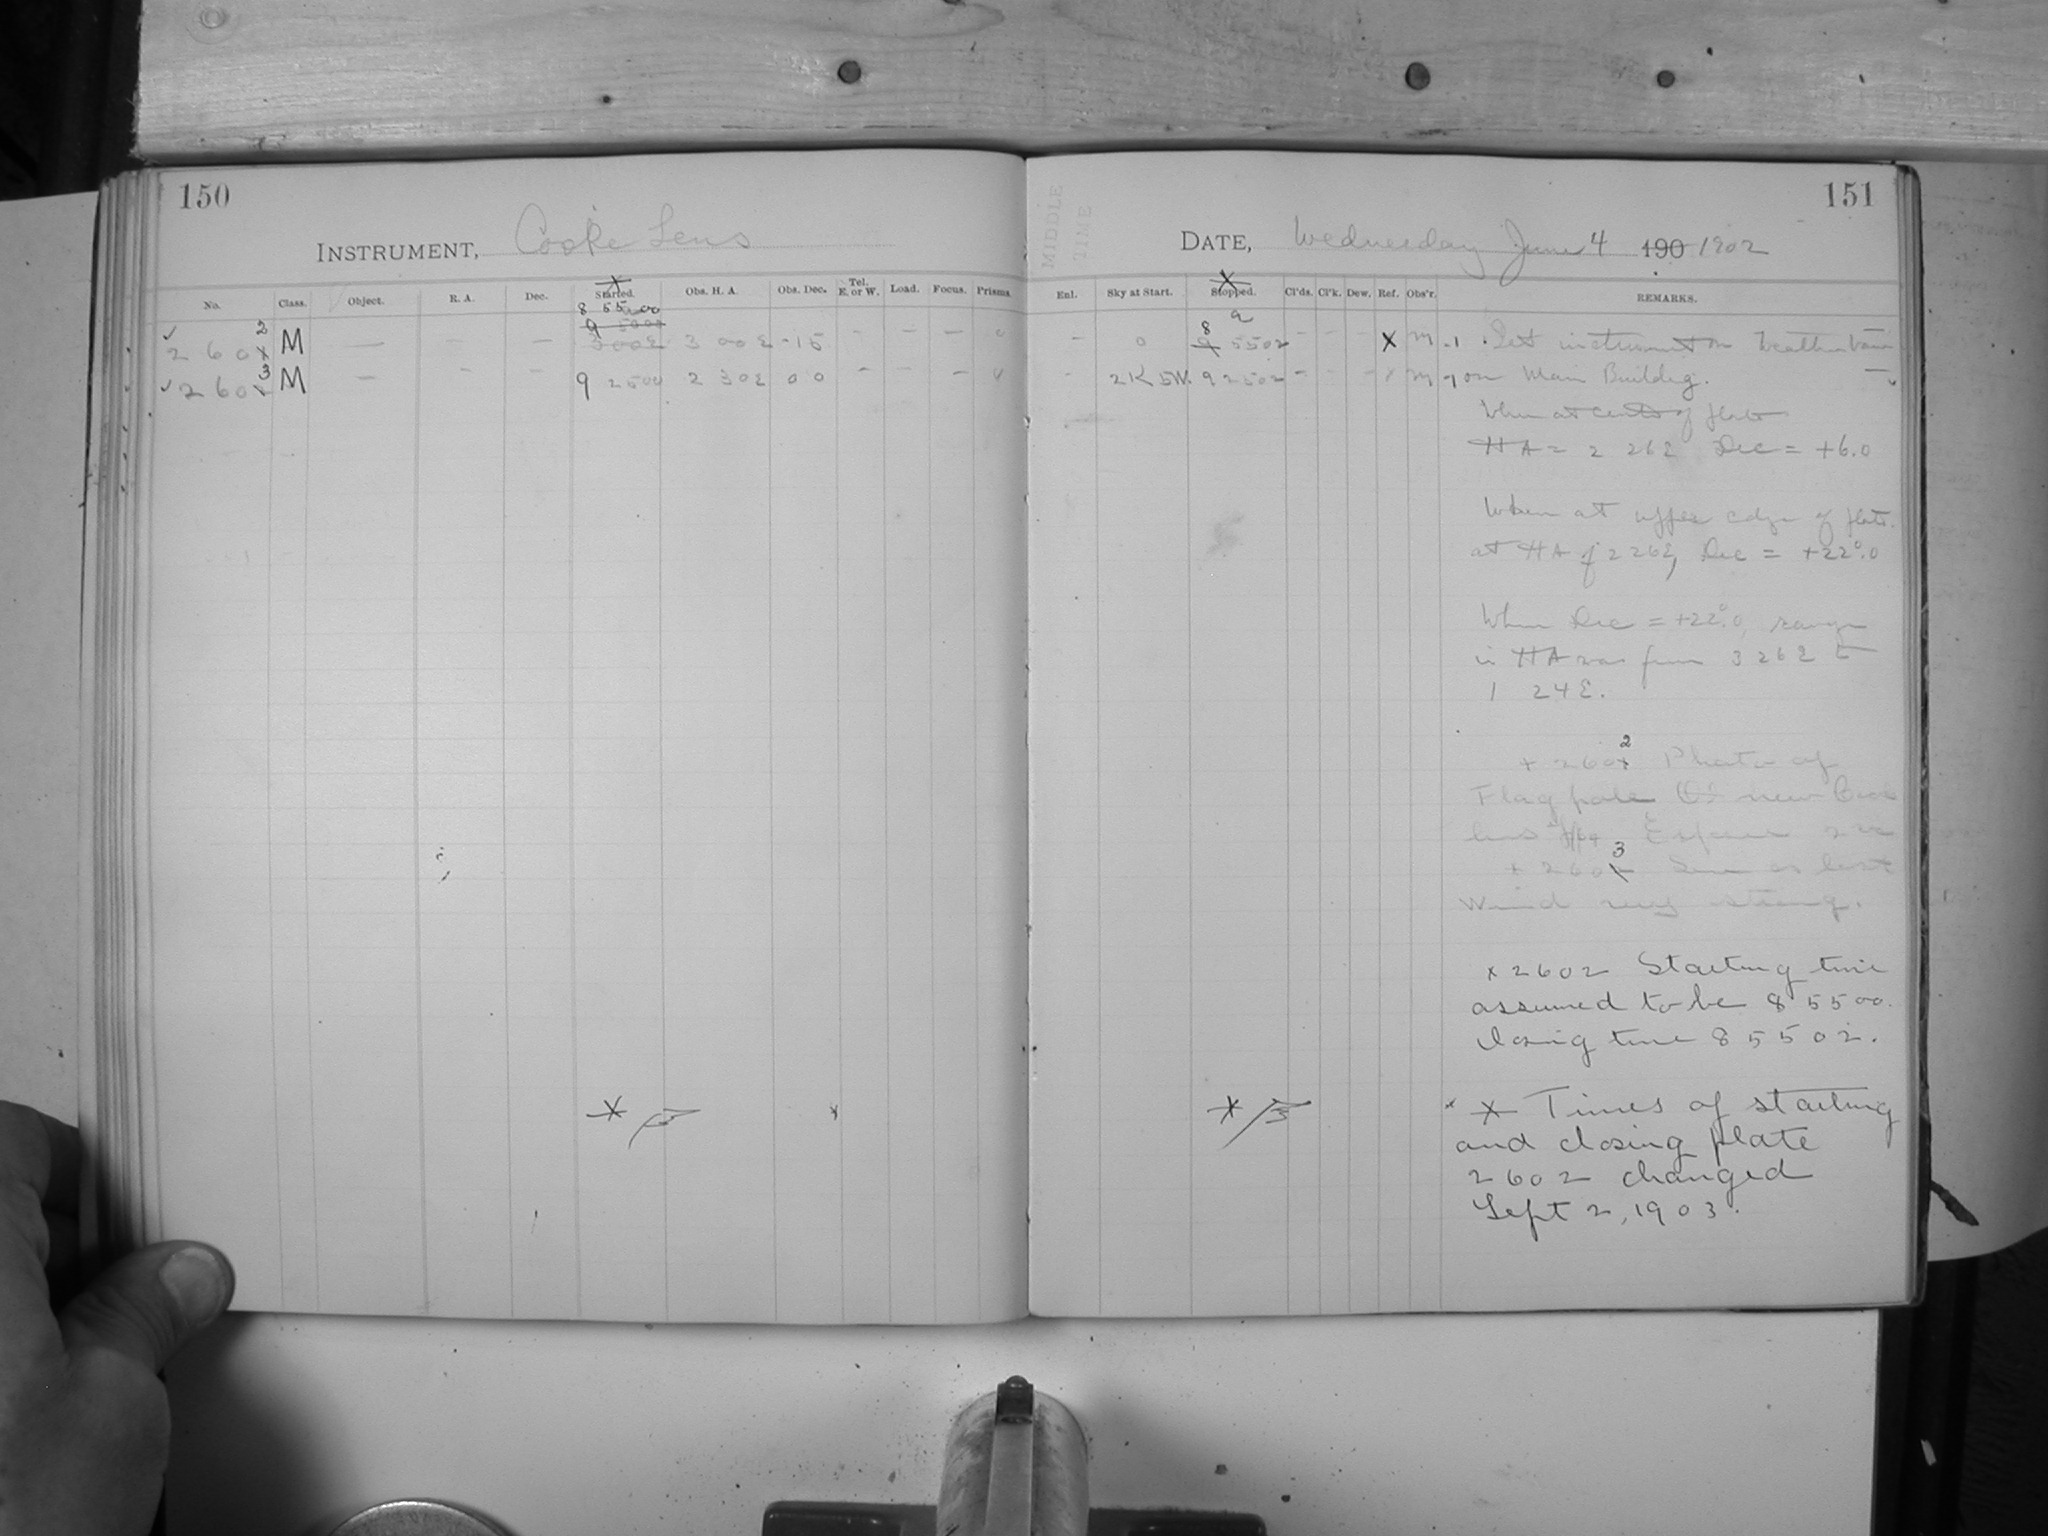 150
INSTRUMENT, Cooke Lens
No. Class. Object. R. A. Dec. Started. Obs. H. A. Obs. Dec. Tel. E. or W. Load. Focus. Prisms.
8 55 00
9 5000
✓ 260x 2 M — – – 3 00 E 3 00 E -15 – – – 0
✓ 2602 3 M — – – 9 2500 2 30 E 00 – – –
151
MIDDLE TIME
DATE, Wednesday June 4 190 1902
Enl. Sky at Start. Stopped. Cl'ds. Cl'k. Dew. Ref. Obs'r. REMARKS.
– 0 8 9 5502 – – – X M -1 Set instrument on
– 2K 5W. 9 2502 – – – x M on Main Building.
When at center of plate
HA = 2 26 E Dec = +6.0
When at upper edge of plate
at HA of 2 26 E, Dec = +22°.0
When Dec = +22°.0, range
in HA was from 3 26 E to
1 24 E.
x 260x 2 Photo of
Flag pole new
lens
x 2602 3 Same as last
Wind very strong.
x 2602 Starting time
assumed to be 8 55 00.
closing time 8 55 02.
X Times of starting
and closing plate
2602 changed
Sept 2, 1903.